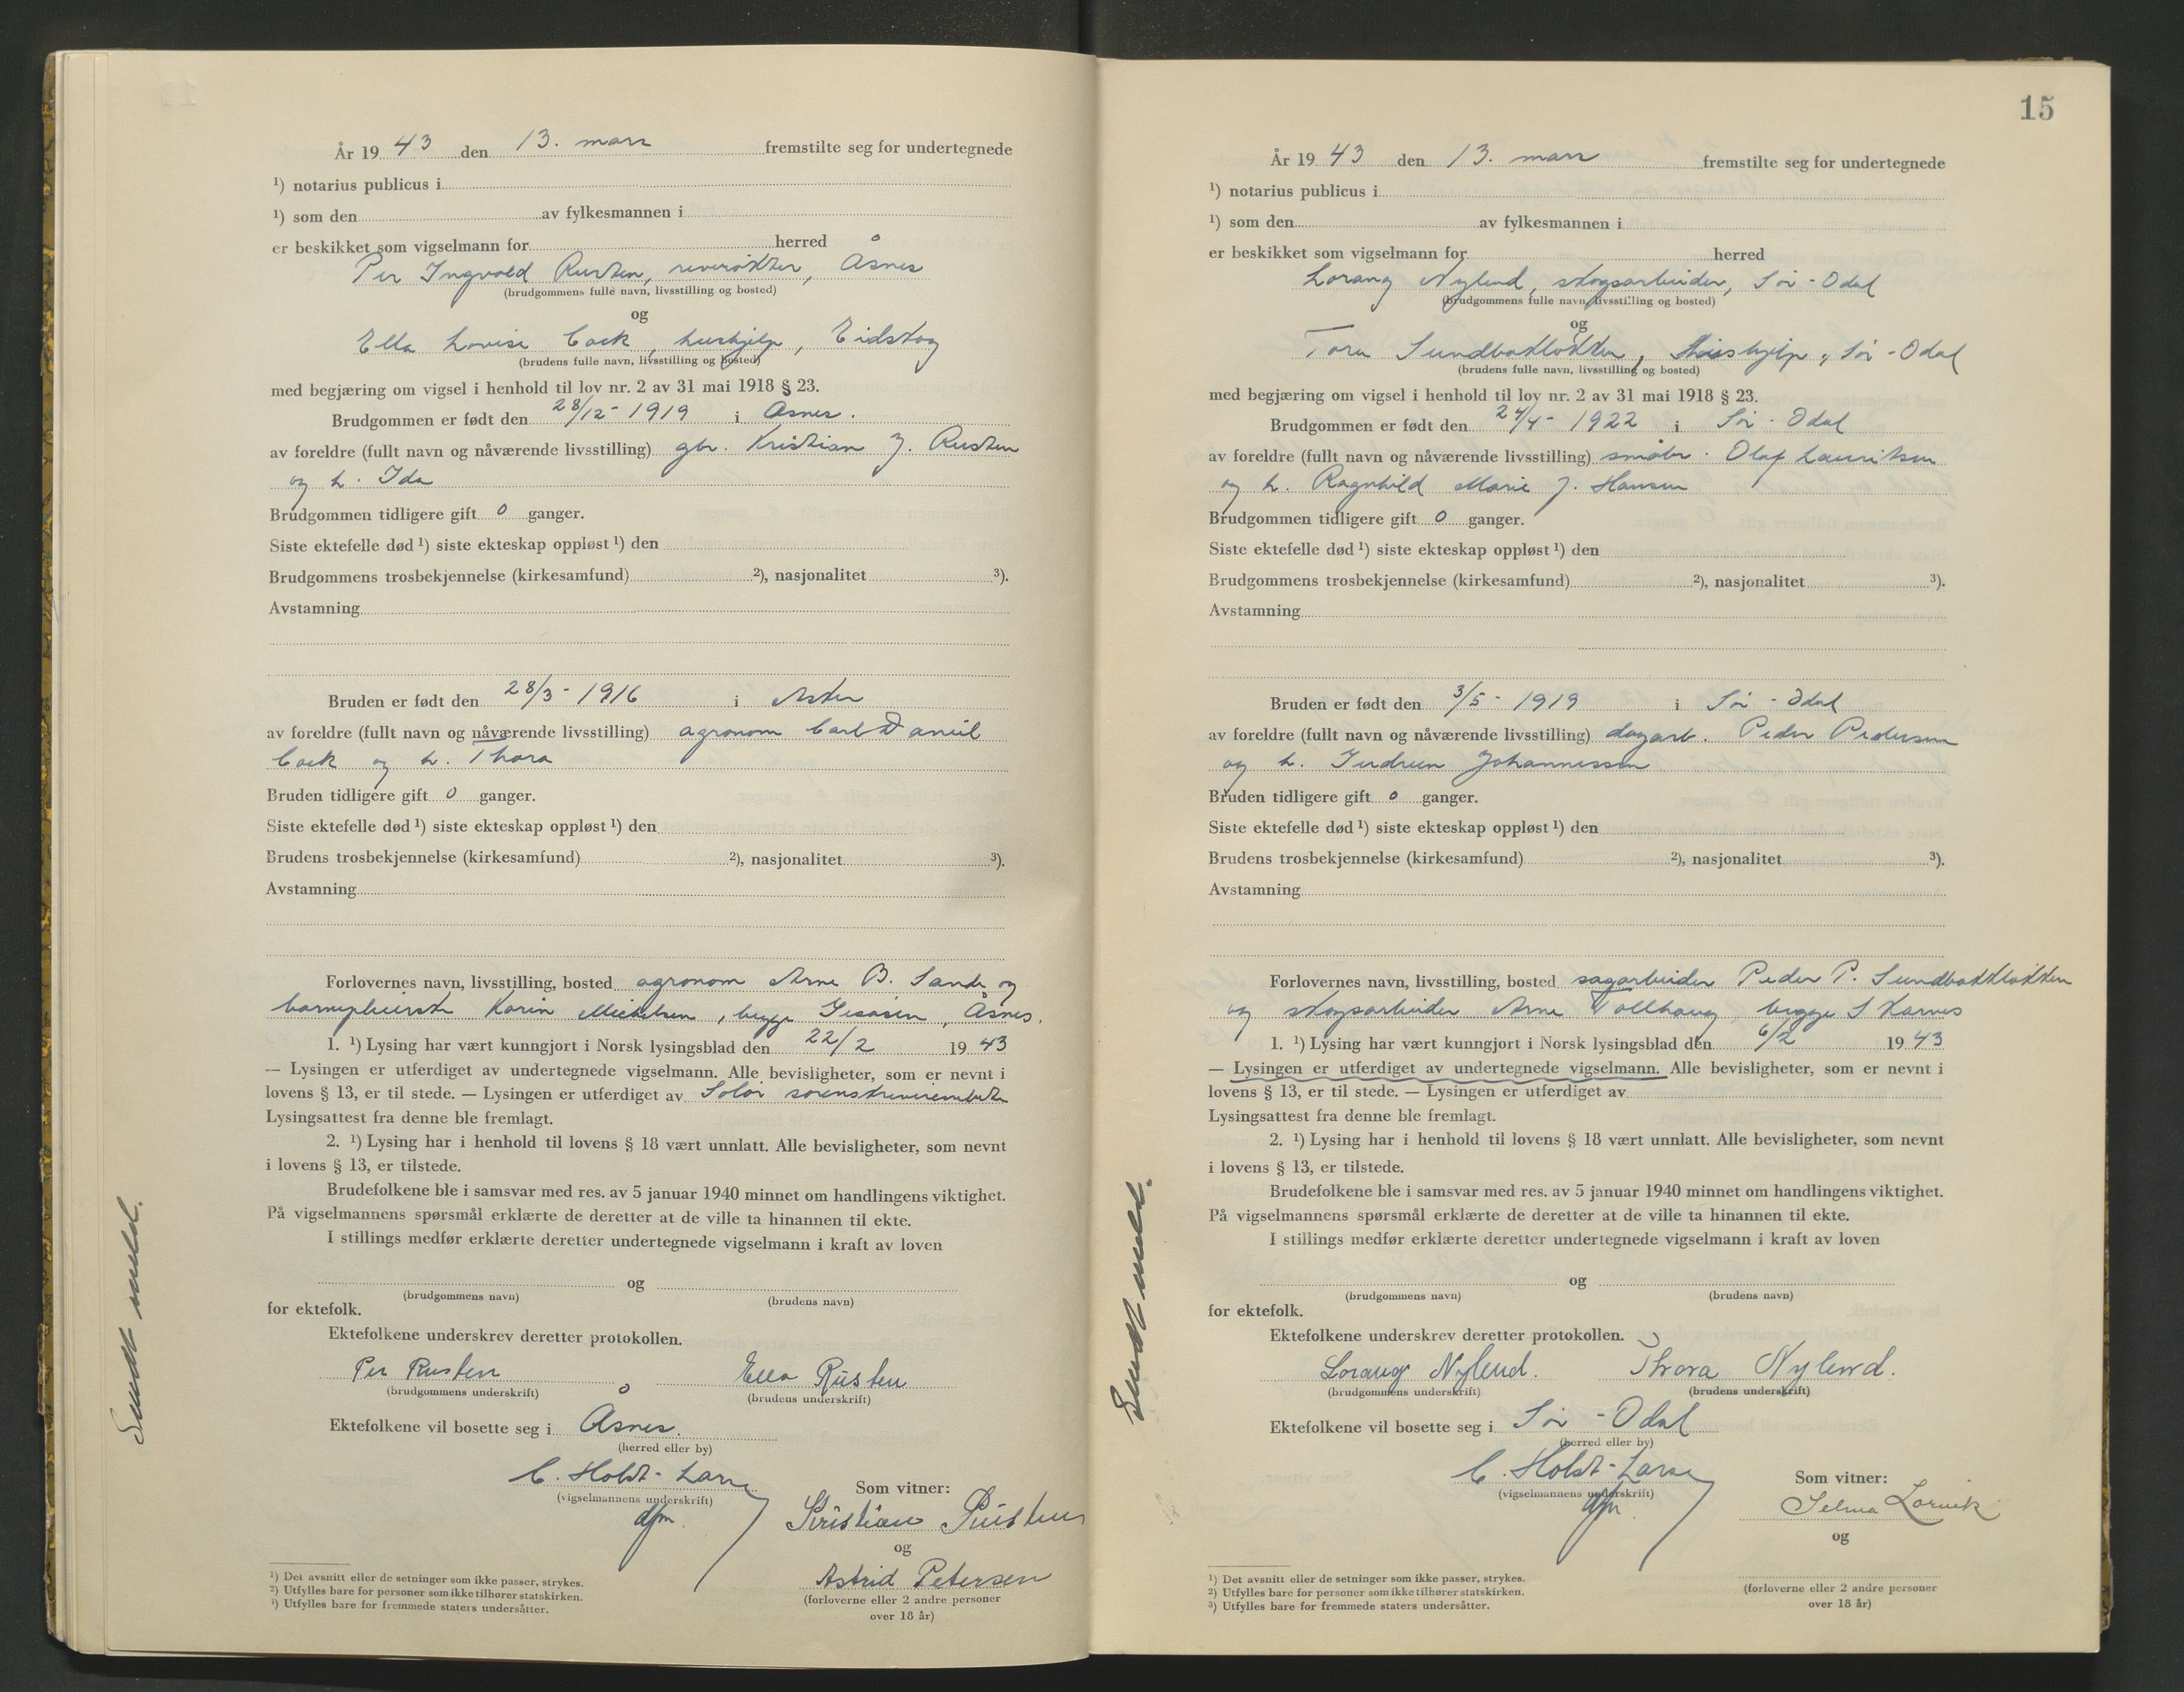 År 19 43 den 13. mars fremstilte seg for undertegnede
¹) notarius publicus i
¹) som den av fylkesmannen i
er beskikket som vigselmann for herred
Per Ingvold Rusten, Åsnes
(brudgommens fulle navn, livsstilling og bosted)
og
Ella Lovise Cock, hushjelp, Eidskog
(brudens fulle navn, livsstilling og bosted)
med begjæring om vigsel i henhold til lov nr. 2 av 31 mai 1918 § 23.
Brudgommen er født den 28/12 - 1919 i Åsnes.
av foreldre (fullt navn og nåværende livsstilling) gbr. Kristian J. Rusten
og h. Ida
Brudgommen tidligere gift 0 ganger.
Siste ektefelle død ¹) siste ekteskap oppløst ¹) den
Brudgommens trosbekjennelse (kirkesamfund) ²), nasjonalitet ³).
Avstamning
Bruden er født den 28/3 - 1916 i Asker
av foreldre (fullt navn og nåværende livsstilling) agronom Carl Daniel
Cock og h. Thora
Bruden tidligere gift 0 ganger.
Siste ektefelle død ¹) siste ekteskap oppløst ¹) den
Brudens trosbekjennelse (kirkesamfund) ²), nasjonalitet ³).
Avstamning
Forlovernes navn, livsstilling, bosted agronom Arne B. Sande og
Karin Mickelsen, begge Gjesåsen, Åsnes.
1. ¹) Lysing har vært kunngjort i Norsk lysingsblad den 22/2 19 43
— Lysingen er utferdiget av undertegnede vigselmann. Alle bevisligheter, som er nevnt i
lovens § 13, er til stede. — Lysingen er utferdiget av Solør sorenskriverembete
Lysingsattest fra denne ble fremlagt.
2. ¹) Lysing har i henhold til lovens § 18 vært unnlatt. Alle bevisligheter, som nevnt
i lovens § 13, er tilstede.
Brudefolkene ble i samsvar med res. av 5 januar 1940 minnet om handlingens viktighet.
På vigselmannens spørsmål erklærte de deretter at de ville ta hinannen til ekte.
I stillings medfør erklærte deretter undertegnede vigselmann i kraft av loven
og
(brudgommens navn) (brudens navn)
for ektefolk.
Ektefolkene underskrev deretter protokollen.
Per Rusten Ella Rusten
(brudgommens underskrift) (brudens underskrift)
Ektefolkene vil bosette seg i Åsnes.
(herred eller by)
C. Holst-Larsen
(vigselmannens underskrift)
dfm.
Som vitner:
Kristian Rusten
og
Astrid Petersen
(forloverne eller 2 andre personer
over 18 år)
¹) Det avsnitt eller de setninger som ikke passer, strykes.
²) Utfylles bare for personer som ikke tilhører statskirken.
³) Utfylles bare for fremmede staters undersåtter.
Sendt meld.
15
År 19 43 den 13. mars fremstilte seg for undertegnede
¹) notarius publicus i
¹) som den av fylkesmannen i
er beskikket som vigselmann for herred
Lorang Nylend, skogsarbeider, Sør-Odal
(brudgommens fulle navn, livsstilling og bosted)
og
Tora Sundbakkløkken, hushjelp, Sør-Odal
(brudens fulle navn, livsstilling og bosted)
med begjæring om vigsel i henhold til lov nr. 2 av 31 mai 1918 § 23.
Brudgommen er født den 24/4 - 1922 i Sør-Odal
av foreldre (fullt navn og nåværende livsstilling) småbr. Olaf Lauritsen
og h. Ragnhild Marie J. Hansen
Brudgommen tidligere gift 0 ganger.
Siste ektefelle død ¹) siste ekteskap oppløst ¹) den
Brudgommens trosbekjennelse (kirkesamfund) ²), nasjonalitet ³).
Avstamning
Bruden er født den 3/5 - 1919 i Sør-Odal
av foreldre (fullt navn og nåværende livsstilling) dagarb. Peder Pedersen
og h. Gudrun Johannessen
Bruden tidligere gift 0 ganger.
Siste ektefelle død ¹) siste ekteskap oppløst ¹) den
Brudens trosbekjennelse (kirkesamfund) ²), nasjonalitet ³).
Avstamning
Forlovernes navn, livsstilling, bosted sagarbeider Peder P. Sundbakkløkken
og skogsarbeider Arne Tollhaug, begge Skarnes
1. ¹) Lysing har vært kunngjort i Norsk lysingsblad den 6/2 19 43
— Lysingen er utferdiget av undertegnede vigselmann. Alle bevisligheter, som er nevnt i
lovens § 13, er til stede. — Lysingen er utferdiget av
Lysingsattest fra denne ble fremlagt.
2. ¹) Lysing har i henhold til lovens § 18 vært unnlatt. Alle bevisligheter, som nevnt
i lovens § 13, er tilstede.
Brudefolkene ble i samsvar med res. av 5 januar 1940 minnet om handlingens viktighet.
På vigselmannens spørsmål erklærte de deretter at de ville ta hinannen til ekte.
I stillings medfør erklærte deretter undertegnede vigselmann i kraft av loven
og
(brudgommens navn) (brudens navn)
for ektefolk.
Ektefolkene underskrev deretter protokollen.
Lorang Nylend. Thora Nylend.
(brudgommens underskrift) (brudens underskrift)
Ektefolkene vil bosette seg i Sør-Odal
(herred eller by)
C. Holst-Larsen
(vigselmannens underskrift)
dfm.
Som vitner:
Selma Lorvik
og
(forloverne eller 2 andre personer
over 18 år)
¹) Det avsnitt eller de setninger som ikke passer, strykes.
²) Utfylles bare for personer som ikke tilhører statskirken.
³) Utfylles bare for fremmede staters undersåtter.
Sendt meld.